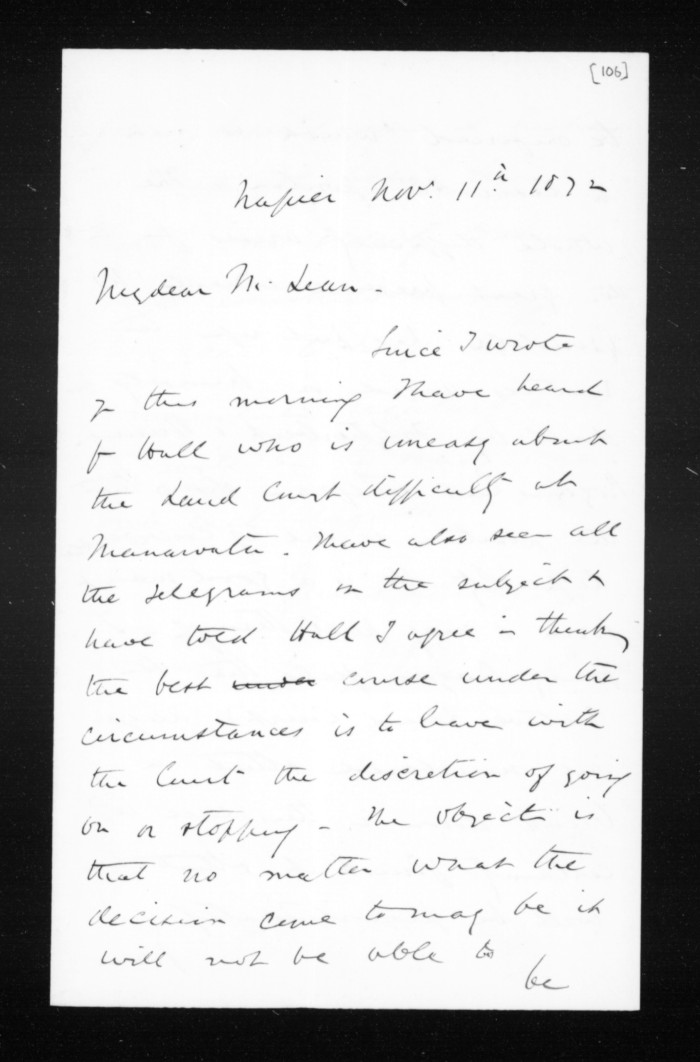 [106]
Napier Nov. 11th 1872
My dear McLean -
Since I wrote
this morning I have heard
fr Hall who is uneasy about
the Land Court difficulty at
Manawatu. I have also seen all
the telegrams on the subject &
have told Hall I agree in thinking
the best under course under the
circumstances is to leave with
the Court the discretion of going
on or stopping - The object is
that no matter what the
decision come to may be it
will not be able to
be